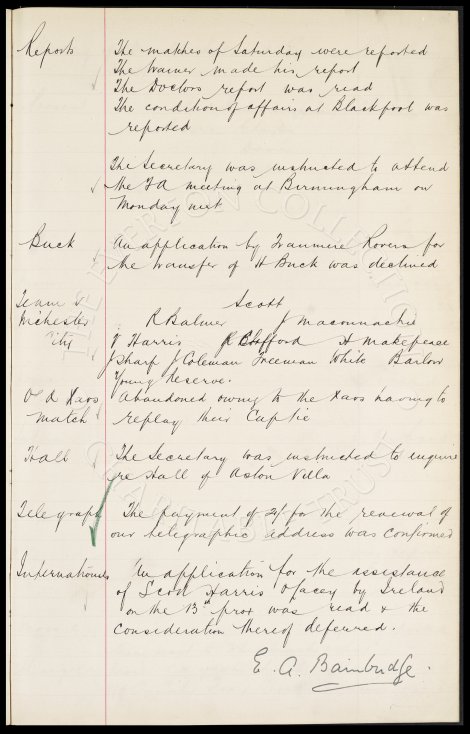 Reports
The matches of Saturday were reported
The trainer made his report
The Doctors report was read
The condition of affairs at Blackpool was
reported
The Secretary was instructed to attend
the FA meeting at Birmingham on
Monday next
Buck
An application by Tranmere Rovers for
the transfer of H Buck was declined
Team v
Manchester
City
Scott
R Balmer J Maconnachie
V Harris R Clifford H Makepeace
J Sharp J Coleman Freeman White Barlow
Young Reserve.
Old Xaos
Match
Abandoned owing to the Xaos having to
replay their Cuptie
Hall
The Secretary was instructed to inquire
re Hall of Aston Villa
Telegraph
The payment of 2/- for the renewal of
our telegraphic address was confirmed
Internationals
An application for the assistance
of Scott Harris & Lacey by Ireland
on the 13th prox was read & the
consideration thereof deferred.
E. A. Bainbridge.
THE EVERTON COLLECTION
CHARITABLE TRUST